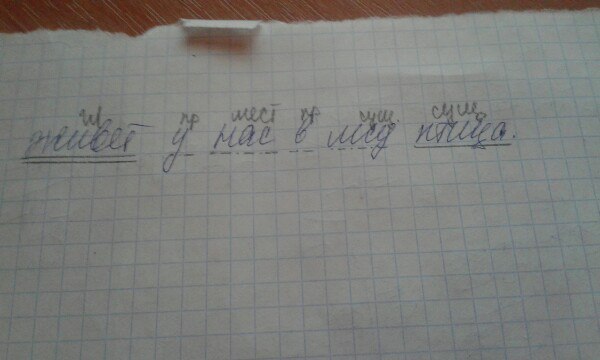 гл пр мест пр сущ. сущ
живёт у нас в лесу птица.